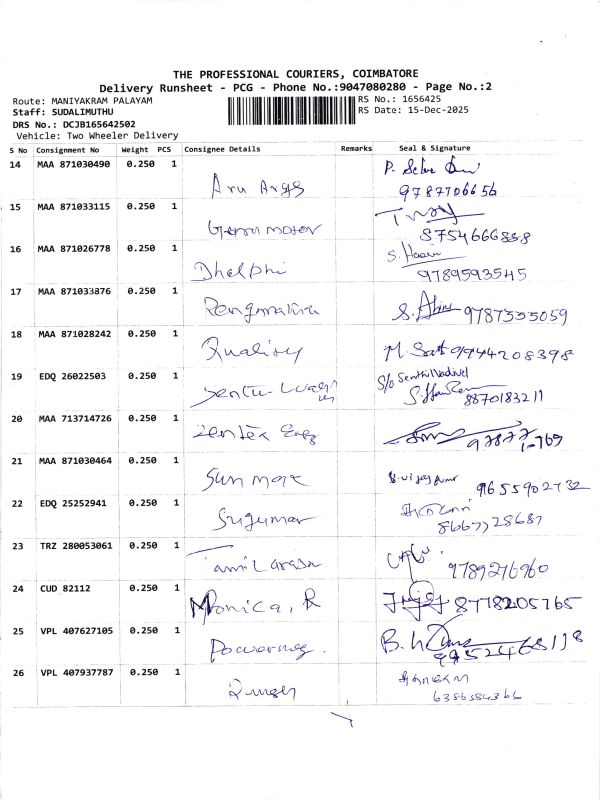 THE PROFESSIONAL COURIERS, COIMBATORE
Delivery Runsheet - PCG - Phone No.:9047080280 - Page No.:2
Route: MANIYAKRAM PALAYAM RS No.: 1656425
Staff: SUDALIMUTHU RS Date: 15-Dec-2025
DRS No.: DCJB165642502
Vehicle: Two Wheeler Delivery
S No Consignment No Weight PCS Consignee Details Remarks Seal & Signature
14 MAA 871030490 0.250 1 P. Selva
9787706656
15 MAA 871033115 0.250 1
8754666858
16 MAA 871026778 0.250 1 Dhalphi
9789593545
17 MAA 871033876 0.250 1 9787555059
18 MAA 871028242 0.250 1 Quality 9944208398
19 EDQ 26022503 0.250 1 S/o Senthil Vadivel
8870183211
20 MAA 713714726 0.250 1
21 MAA 871030464 0.250 1 Sun max 9655902732
22 EDQ 25252941 0.250 1 Sugumar
8667728687
23 TRZ 280053061 0.250 1 Tamilarasu 9789276960
24 CUD 82112 0.250 1 Monica, R 8778205765
25 VPL 407627105 0.250 1
9952468118
26 VPL 407937787 0.250 1
6386584366